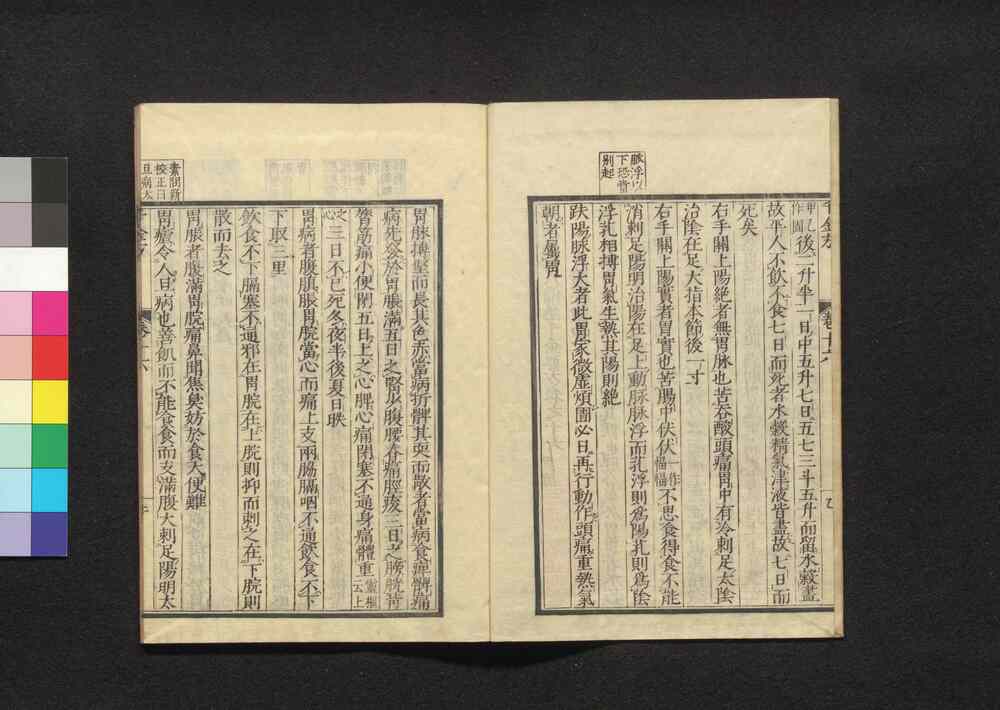 脈浮以
下恐當
別起
甲乙
作圊
後二升半一日中五升七日五七三斗五升而留水穀盡
故平人不飲不食七日而死者水穀精氣津液皆盡故七日而
死矣
右手關上陽絕者無胃脉也苦吞酸頭痛胃中有冷刺足太陰
治陰在足大指本節後一寸
右手關上陽實者胃實也苦腸中伏伏一作愊愊不思食得食不能
消刺足陽明治陽在足上動脉脉浮而芤浮則為陽芤則為陰
浮芤相搏胃氣生熱其陽則絕
趺陽脉浮大者此胃家微虛煩圊必日再行動作頭痛重熱氣
朝者屬胃
胃脉搏堅而長其色赤當病折髀其耎而散者當病食痺髀痛
病先發於胃脹滿五日之腎少腹腰脊痛脛痠三日之膀胱背
膂筋痛小便閉五日上之心脾心痛閉塞不通身痛體重靈樞云上
之心
三日不已死冬夜半後夏日昳
胃病者腹䐜脹胃脘當心而痛上支兩脇膈咽不通飲食不下
下取三里
飲食不下膈塞不通邪在胃脘在上脘則抑而刺之在下脘則
散而去之
胃脹者腹滿胃脘痛鼻聞焦臭妨於食大便難
素問新
校正曰
旦病太
胃瘧令人旦病也善飢而不能食食而支滿腹大刺足陽明太
卷十六